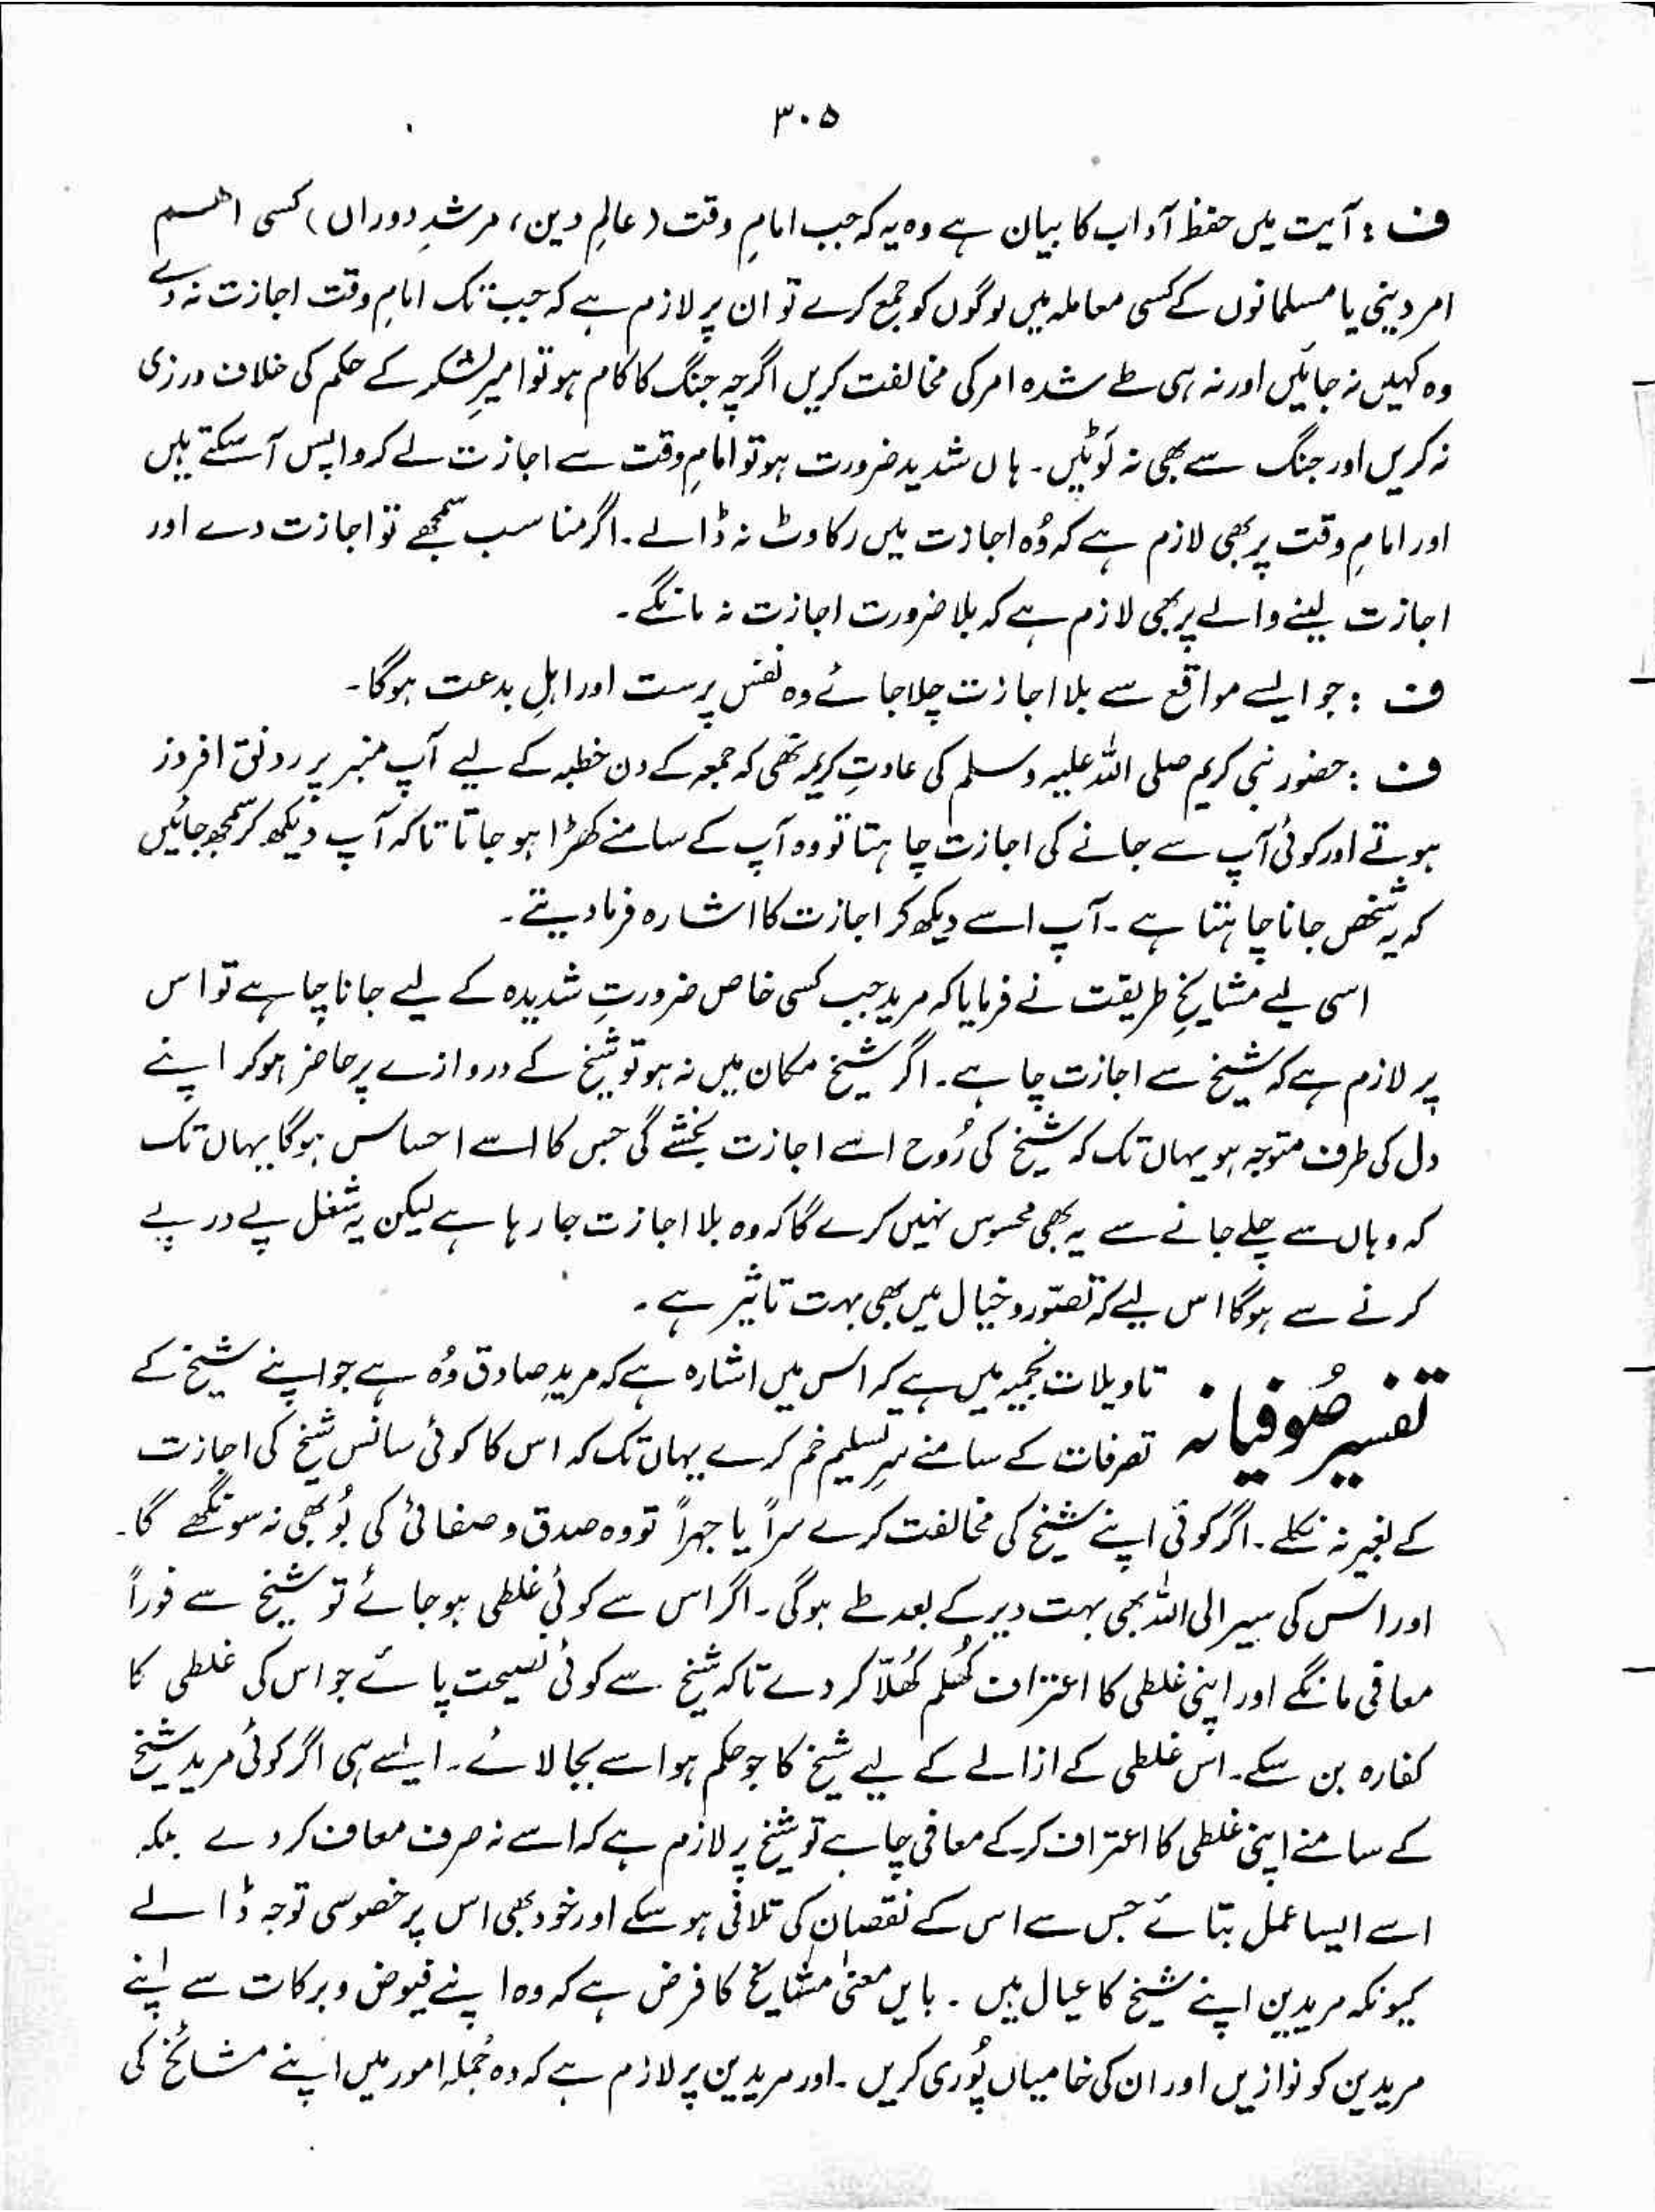 ۳۰۵
ف : آیت میں حفظ آداب کا بیان ہے وہ یہ کہ جب امامِ وقت (عالمِ دین، مرشدِ دوراں) کسی اہم
امر دینی یا مسلمانوں کے کسی معاملہ میں لوگوں کو جمع کرے تو ان پر لازم ہے کہ جب تک امامِ وقت اجازت نہ دے
وہ کہیں نہ جائیں اور نہ ہی طے شدہ امر کی مخالفت کریں اگرچہ جنگ کا کام ہو تو امیرِ لشکر کے حکم کی خلاف ورزی
نہ کریں اور جنگ سے بھی نہ لَوٹیں۔ ہاں شدید ضرورت ہو تو امامِ وقت سے اجازت لے کر واپس آ سکتے ہیں
اور امامِ وقت پر بھی لازم ہے کہ وُہ اجازت میں رکاوٹ نہ ڈالے۔ اگر مناسب سمجھے تو اجازت دے اور
اجازت لینے والے پر بھی لازم ہے کہ بلا ضرورت اجازت نہ مانگے۔
ف : جو ایسے مواقع سے بلا اجازت چلا جائے وہ نفس پرست اور اہلِ بدعت ہوگا۔
ف : حضور نبی کریم صلی اللہ علیہ وسلم کی عادتِ کریمہ تھی کہ جمعہ کے دن خطبہ کے لیے آپ منبر پر رونق افروز
ہوتے اور کوئی آپ سے جانے کی اجازت چاہتا تو وہ آپ کے سامنے کھڑا ہو جاتا تاکہ آپ دیکھ کر سمجھ جائیں
کہ یہ شخص جانا چاہتا ہے۔ آپ اسے دیکھ کر اجازت کا اشارہ فرما دیتے۔
اسی لیے مشایخِ طریقت نے فرمایا کہ مرید جب کسی خاص ضرورتِ شدیدہ کے لیے جانا چاہے تو اس
پر لازم ہے کہ شیخ سے اجازت چاہے۔ اگر شیخ مکان میں نہ ہو تو شیخ کے دروازے پر حاضر ہوکر اپنے
دل کی طرف متوجہ ہو یہاں تک کہ شیخ کی رُوح اسے اجازت بخشے گی جس کا اسے احساس ہوگا یہاں تک
کہ وہاں سے چلے جانے سے یہ بھی محسوس نہیں کرے گا کہ وہ بلا اجازت جا رہا ہے لیکن یہ شغل پے در پے
کرنے سے ہوگا اس لیے کہ تصوّر و خیال میں بھی بہت تاثیر ہے۔
تفسیر صُوفیانہ تاویلات نجمیہ میں ہے کہ اس میں اشارہ ہے کہ مریدِ صادق وُہ ہے جو اپنے شیخ کے
تصرفات کے سامنے سرِ تسلیم خم کرے یہاں تک کہ اس کا کوئی سانس شیخ کی اجازت
کے بغیر نہ نکلے۔ اگر کوئی اپنے شیخ کی مخالفت کرے سراً یا جہراً تو وہ صدق و صفائی کی بُو بھی نہ سونگھے گا۔
اور اس کی سیر الی اللہ بھی بہت دیر کے بعد طے ہوگی۔ اگر اس سے کوئی غلطی ہو جائے تو شیخ سے فوراً
معافی مانگے اور اپنی غلطی کا اعتراف کُھلم کُھلّا کر دے تاکہ شیخ سے کوئی نصیحت پائے جو اس کی غلطی کا
کفارہ بن سکے۔ اس غلطی کے ازالے کے لیے شیخ کا جو حکم ہو اسے بجا لائے۔ ایسے ہی اگر کوئی مرید شیخ
کے سامنے اپنی غلطی کا اعتراف کرکے معافی چاہے تو شیخ پر لازم ہے کہ اسے نہ صرف معاف کر دے بلکہ
اسے ایسا عمل بتائے جس سے اس کے نقصان کی تلافی ہو سکے اور خود بھی اس پر خصوصی توجہ ڈالے
کیونکہ مریدین اپنے شیخ کا عیال ہیں۔ بایں معنیٰ مشایخ کا فرض ہے کہ وہ اپنے فیوض و برکات سے اپنے
مریدین کو نوازیں اور ان کی خامیاں پُوری کریں۔ اور مریدین پر لازم ہے کہ وہ جُملہ امور میں اپنے مشائخ کی